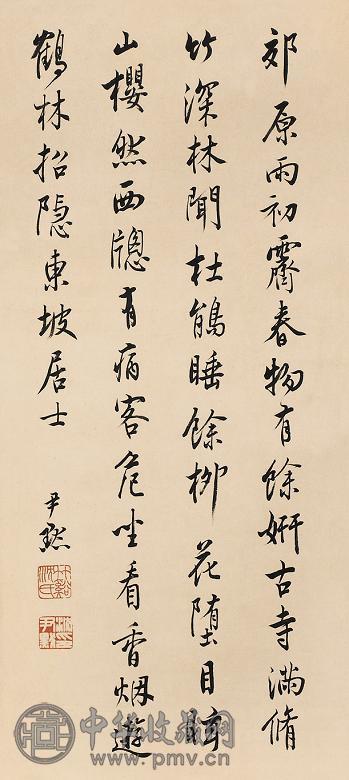 郊原雨初霽春物有餘妍古寺滿脩
竹深林聞杜鵑睡餘柳花墮目眩
山櫻然西牕有病客危坐看香烟遊
鶴林招隱東坡居士
尹默
竹谿沈氏
中华收藏网
www.pmv.cn